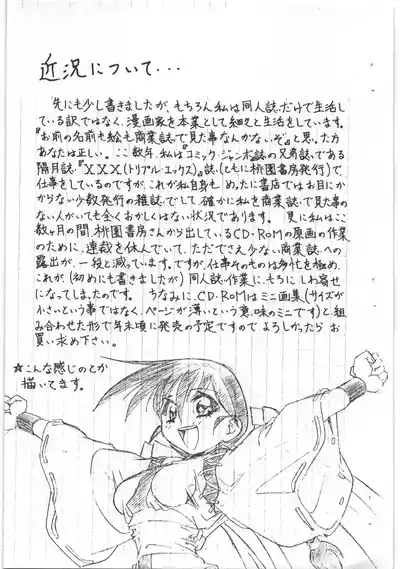 近況について・・・
先にも少し書きましたが、もちろん私は同人誌だけで生活し
ている訳ではなく、漫画家を本業として細々と生活をしています。
『お前の名前も絵も商業誌で見た事なんかないぞ』と思った方
あなたは正しい。ここ数年、私は『コミック・ジャンボ』誌の兄弟誌である
隔月誌『XXX(トリプル・エックス)』誌(ともに桃園書房発行)で
仕事をしているのですが、これが私自身も めったに書店ではお目にか
からない少数発行の雑誌でして、確かに私を商業誌で見た事の
ない人がいても全くおかしくはない状況であります。 更に私はここ
数ヶ月の間、桃園書房さんから出しているCD-ROMの原画の作業
のために、連載を休んでいて、ただでさえ少ない商業誌への
露出が、一段と減っています。ですが、仕事そのものは多忙を極め
これが、(初めにも書きましたが)同人誌の作業に、もろに しわ寄せ
になってしまったのです。 ちなみに、CD-ROMはミニ画集(サイズが
小さいという事ではなく、ページが薄いという意味のミニです)と組
み合わせた形で年末頃に発売の予定ですので よろしかったら お
買い求め下さい。
★こんな感じのとか
描いてます。